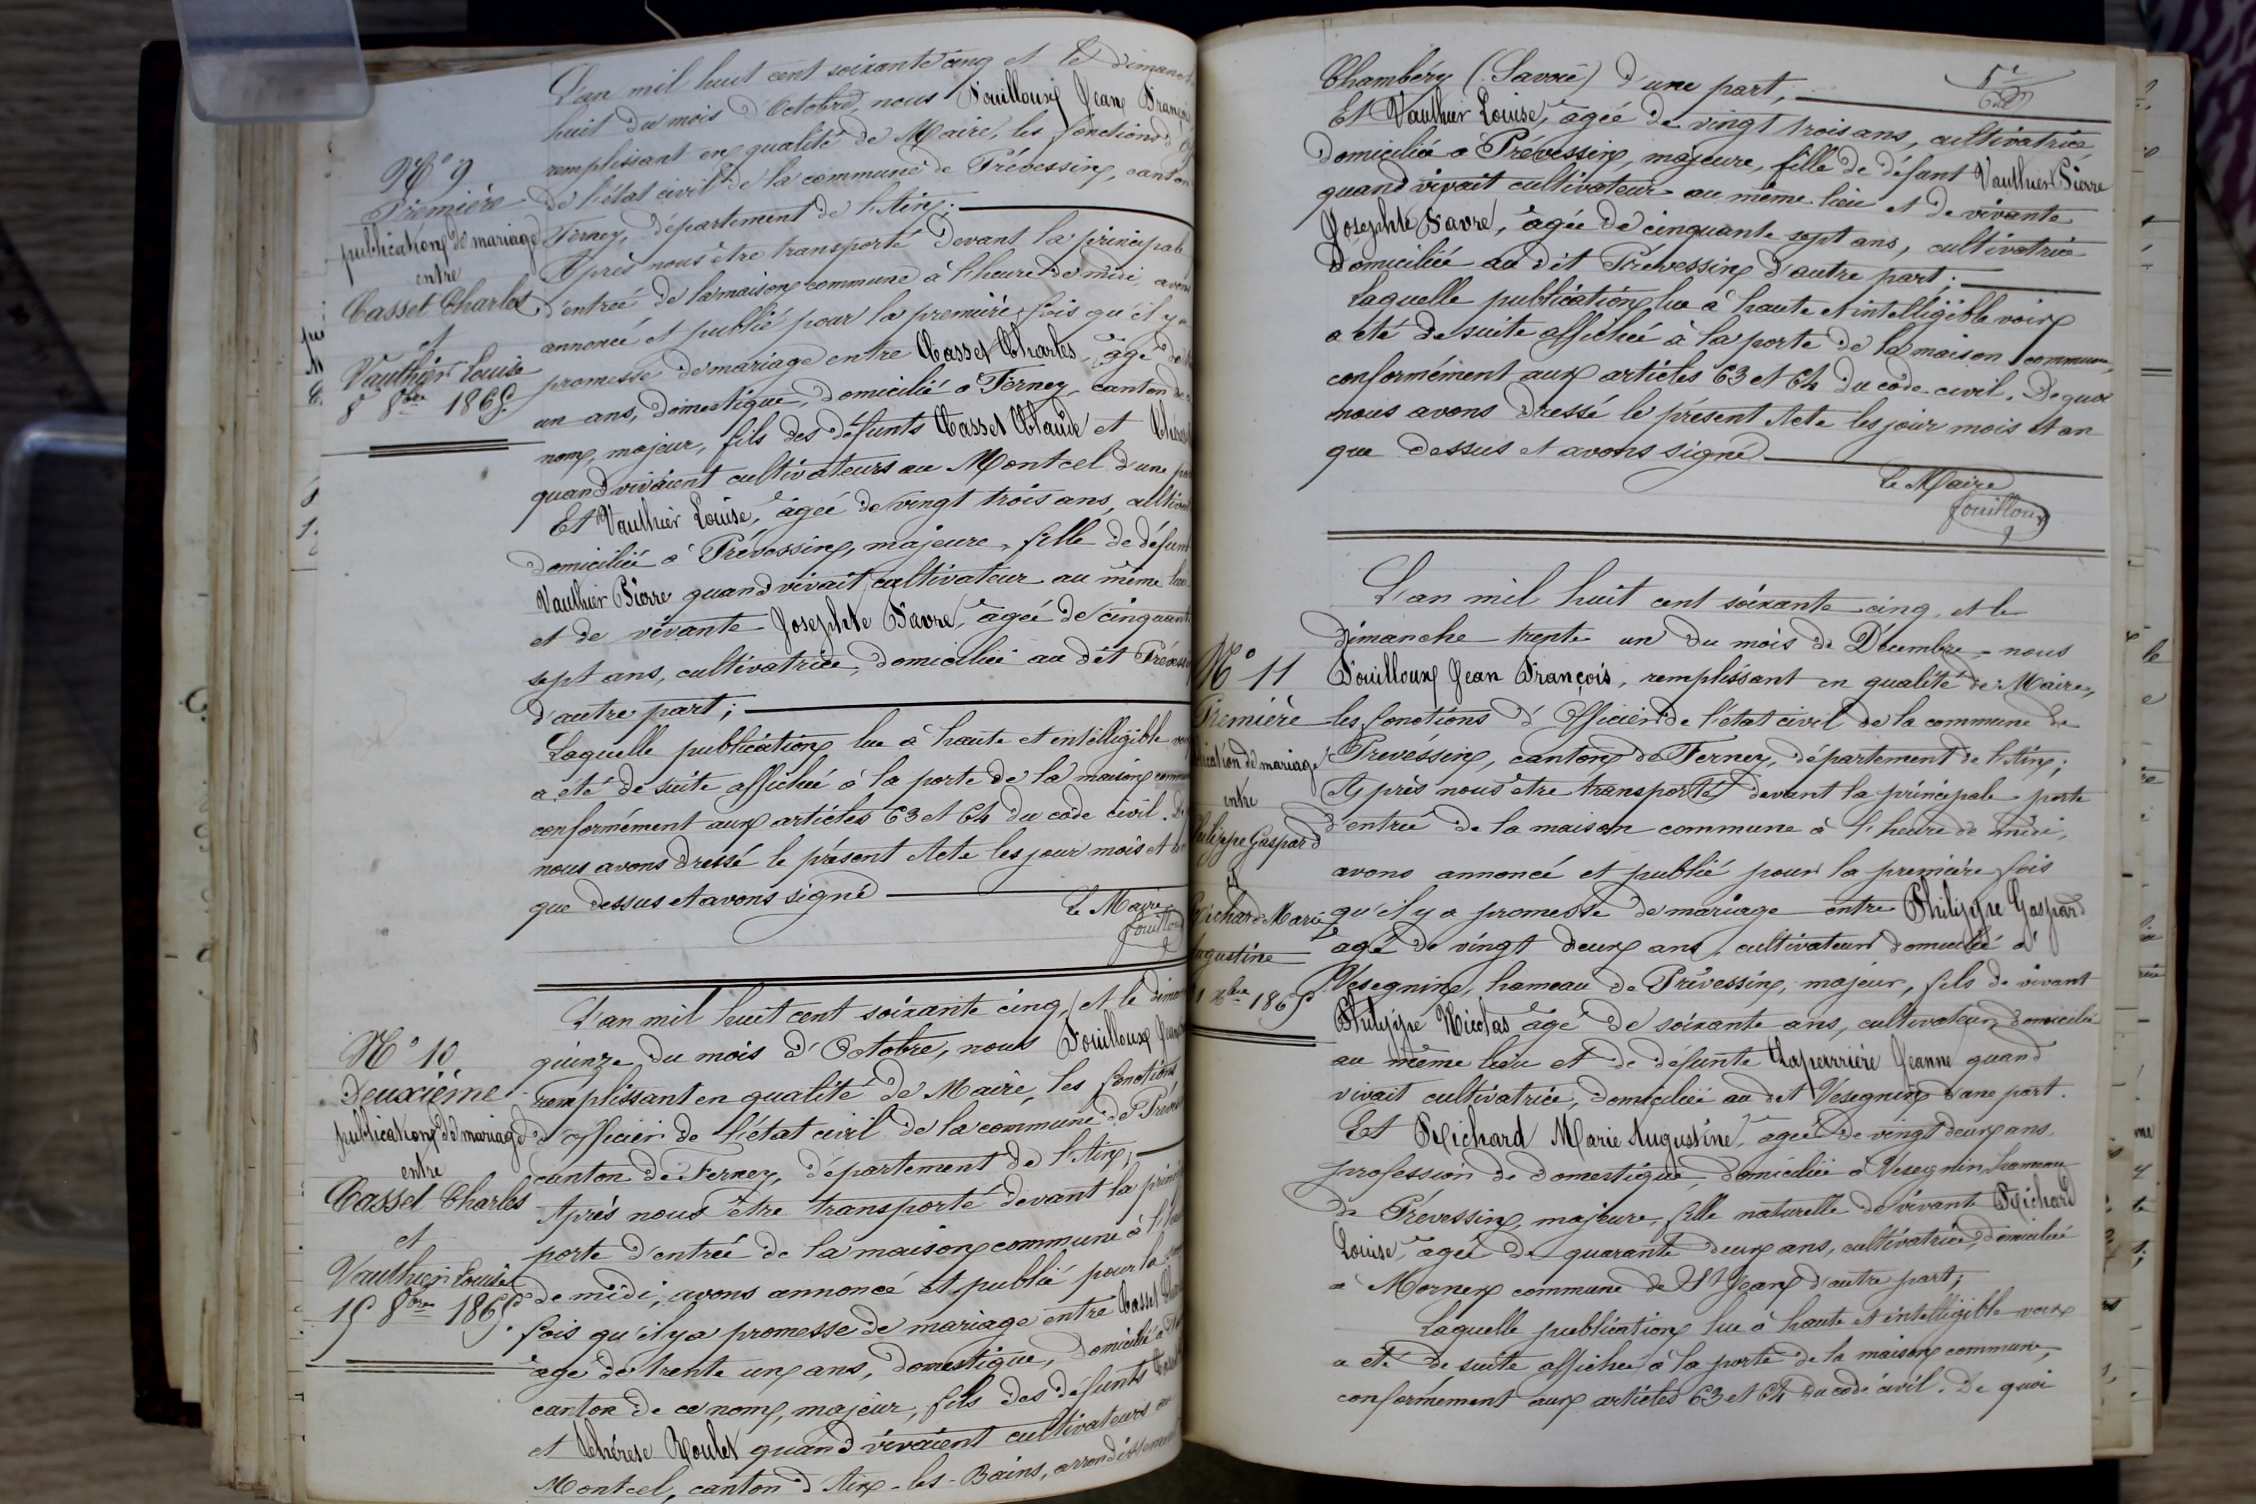 L'an mil huit cent soixante cinq et le dimanche
huit du mois d'Octobre, nous Fouilloux Jean François
remplissant en qualité de Maire, les fonctions d'
de l'état civil de la commune de Prévessin, canton
Ferney, département de l'Ain;
Après nous être transporté devant la principale
d'entrée de la maison commune à l'heure de midi, avons
annoncé et publié pour la première fois qu'il y a
promesse de mariage entre Casset Charles, âgé de
un ans, domestique, domicilié à Ferney, canton de
nom, majeur, fils des défunts Casset Claude et
quand vivaient cultivateurs au Montcel d'une part
Et Vauthier Louise, âgée de vingt trois ans,
domiciliée à Prévessin, majeure, fille de défunt
Vauthier Pierre quand vivait cultivateur au même lieu
et de vivante Josephte Favre âgée de cinquante
sept ans, cultivatrice, domiciliée au dit Prévessin
d'autre part;
Laquelle publication lue à haute et intelligible voix
a été de suite affichée à la porte de la maison commune
conformément aux articles 63 et 64 du code civil. De
nous avons dressé le présent Acte les jour mois et an
que dessus et avons signé
Le Maire
Fouilloux
N° 9
Première
publication de mariage
entre
Casset Charles
et
Vauthier Louise
8 8bre 1865.
L'an mil huit cent soixante cinq, et le dimanche
quinze du mois d'Octobre, nous Fouilloux Jean
remplissant en qualité de Maire, les fonctions
d'officier de l'état civil de la commune de Prévessin
canton de Ferney, département de l'Ain;
Après nous être transporté devant la principale
porte d'entrée de la maison commune à l'heure
de midi, avons annoncé et publié pour la
fois qu'il y a promesse de mariage entre Casset Charles
âgé de trente un ans, domestique, domicilié à
canton de ce nom, majeur, fils des défunts Casset
et Thérese Roulet quand vivaient cultivateurs au
Montcel, canton d'Aix-les-Bains, arrondissement
N° 10
Deuxième
publication de mariage
entre
Casset Charles
et
Vauthier Louise
15 8bre 1865.
Chambéry (Savoie) d'une part;
Et Vauthier Louise, âgée de vingt trois ans, cultivatrice,
domiciliée à Prévessin, majeure, fille de défunt Vauthier Pierre
quand vivait cultivateur au même lieu et de vivante
Josephte Favre, âgée de cinquante sept ans, cultivatrice
domiciliée au dit Prévessin d'autre part;
Laquelle publication lue à haute et intelligible voix
a été de suite affichée à la porte de la maison commune,
conformément aux articles 63 et 64 du code civil. De quoi
nous avons dressé le présent Acte les jour mois et an
que dessus et avons signé
Le Maire
Fouilloux
L'an mil huit cent soixante cinq, et le
dimanche trente un du mois de Décembre, nous
Fouilloux Jean François, remplissant en qualité de Maire,
les fonctions d'Officier de l'état civil de la commune de
Prévessin, canton de Ferney, département de l'Ain;
Après nous être transporté devant la principale porte
d'entrée de la maison commune à l'heure de midi,
avons annoncé et publié pour la première fois
qu'il y a promesse de mariage entre Philippe Gaspard
âgé de vingt deux ans, cultivateur domicilié à
Vesegnin, hameau de Prévessin, majeur, fils de vivant
Philippe Nicolas âgé de soixante ans, cultivateur, domicilié
au même lieu et de défunte Laperrière Jeanne quand
vivait cultivatrice, domiciliée au dit Vesegnin d'une part.
Et Richard Marie Augustine âgée de vingt deux ans,
profession de domestique, domiciliée à Vesegnin hameau
de Prévessin, majeure, fille naturelle de vivante Richard
Louise âgée de quarante deux ans, cultivatrice, domiciliée
à Mornex commune de St Jean d'autre part;
Laquelle publication lue à haute et intelligible voix
a été de suite affichée à la porte de la maison commune,
conformément aux articles 63 et 64 du code civil. De quoi
N° 11
Première
publication de mariage
entre
Philippe Gaspard
et
Richard Marie
Augustine
31 Xbre 1865